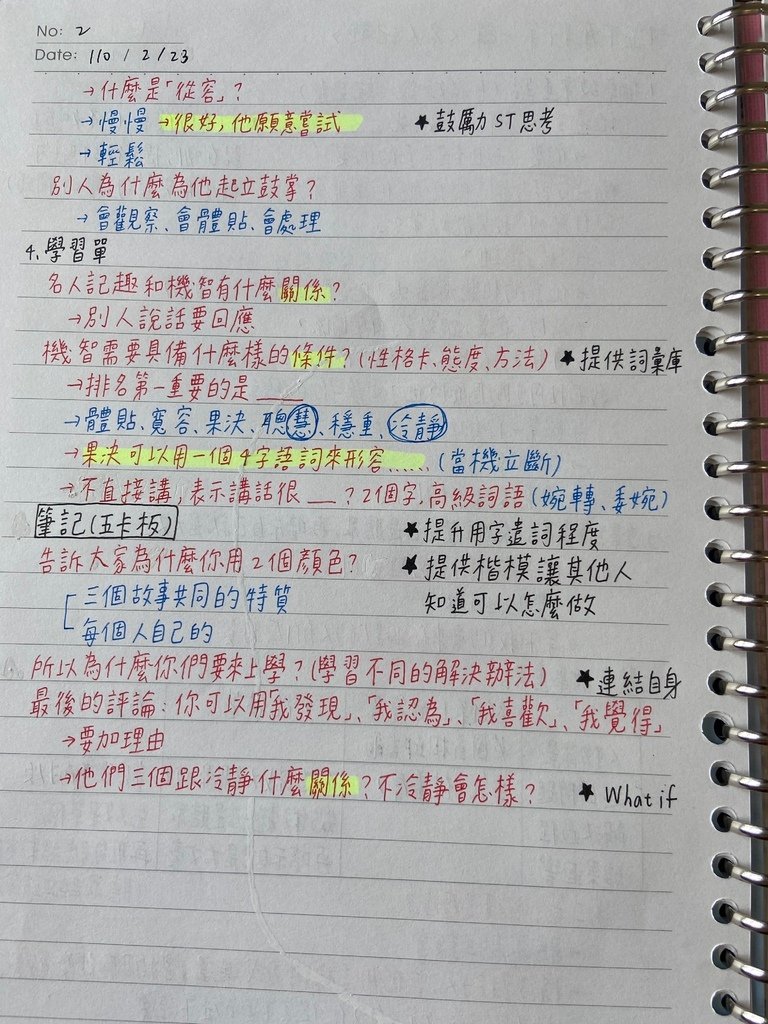 No: 2
Date: 110 / 2 / 23
→什麼是「從容」?
→慢慢 →很好,他願意嘗試 ★鼓勵ST思考
→輕鬆
別人為什麼為他起立鼓掌?
→會觀察、會體貼、會處理
4.學習單
名人記趣和機智有什麼關係?
→別人說話要回應
機智需要具備什麼樣的條件?(性格卡、態度、方法) ★提供詞彙庫
→排名第一重要的是____
→體貼、寬容、果決、聰慧、穩重、冷靜
→果決可以用一個4字語詞來形容......(當機立斷)
→不直接講,表示講話很__?2個字,高級詞語(婉轉、委婉)
筆記(五卡板) ★提升用字遣詞程度
告訴大家為什麼你用2個顏色? ★提供楷模讓其他人
三個故事共同的特質 知道可以怎麼做
每個人自己的
所以為什麼你們要來上學?(學習不同的解決辦法) ★連結自身
最後的評論:你可以用「我發現」、「我認為」、「我喜歡」、「我覺得」
→要加理由
→他們三個跟冷靜什麼關係?不冷靜會怎樣? ★What if